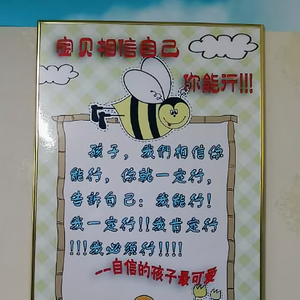 宝贝相信自己
你能行!!!
孩子，我们相信你
能行，你就一定行，
告诉自己：我能行!
我一定行!!我肯定行
!!!我必须行!!!!
---自信的孩子最可爱